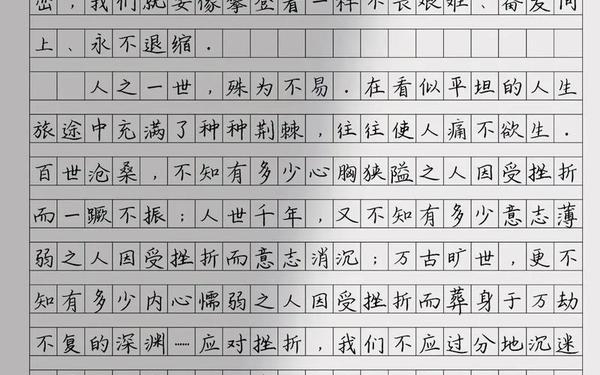 密，我们就要像攀登者一样不畏艰难、奋发向
上、永不退缩．
人之一世，殊为不易．在看似平坦的人生
旅途中充满了种种荆棘，往往使人痛不欲生．
百世沧桑，不知有多少心胸狭隘之人因受挫折
而一蹶不振；人世千年，又不知有多少意志薄
弱之人因受挫折而意志消沉；万古旷世，更不
知有多少内心懦弱之人因受挫折而葬身于万劫
不复的深渊……应对挫折，我们不应过分地沉迷